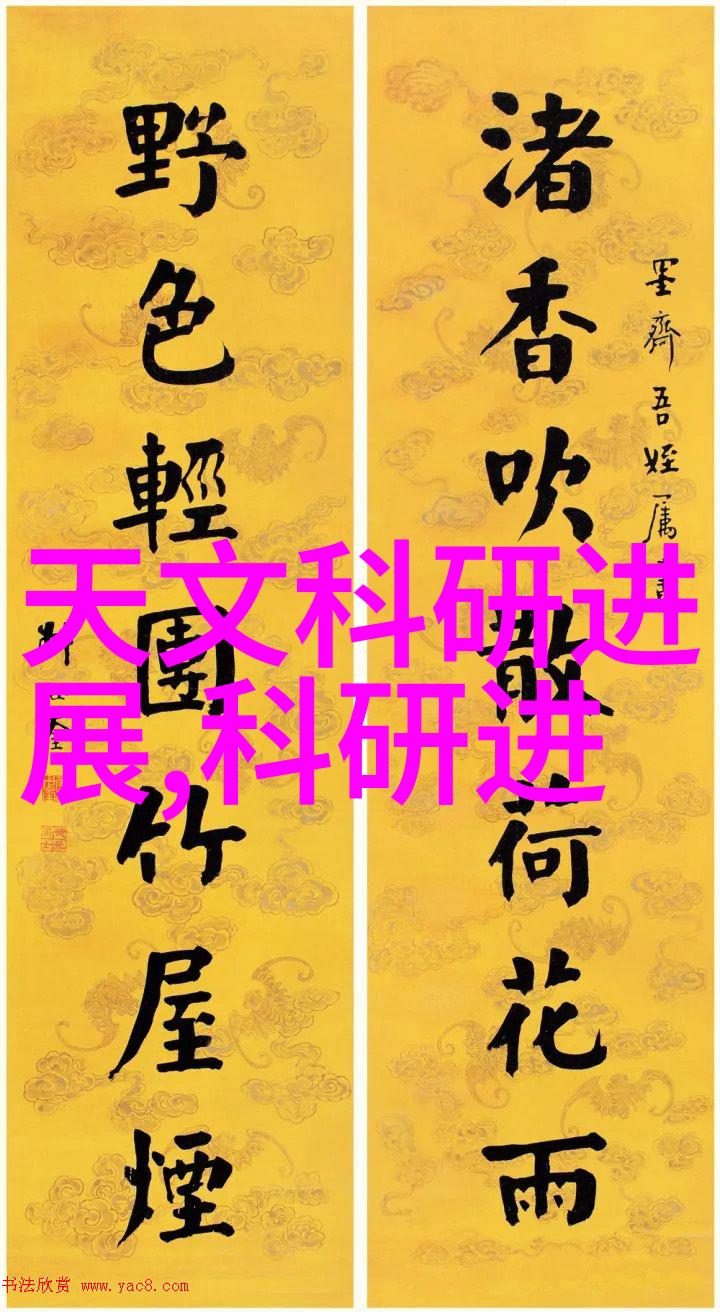 渚香吹散荷花雨
墨齋吾姪属書
野色輕團竹屋煙
天文科研进
展,科研进
书法欣赏 www.yac8.com